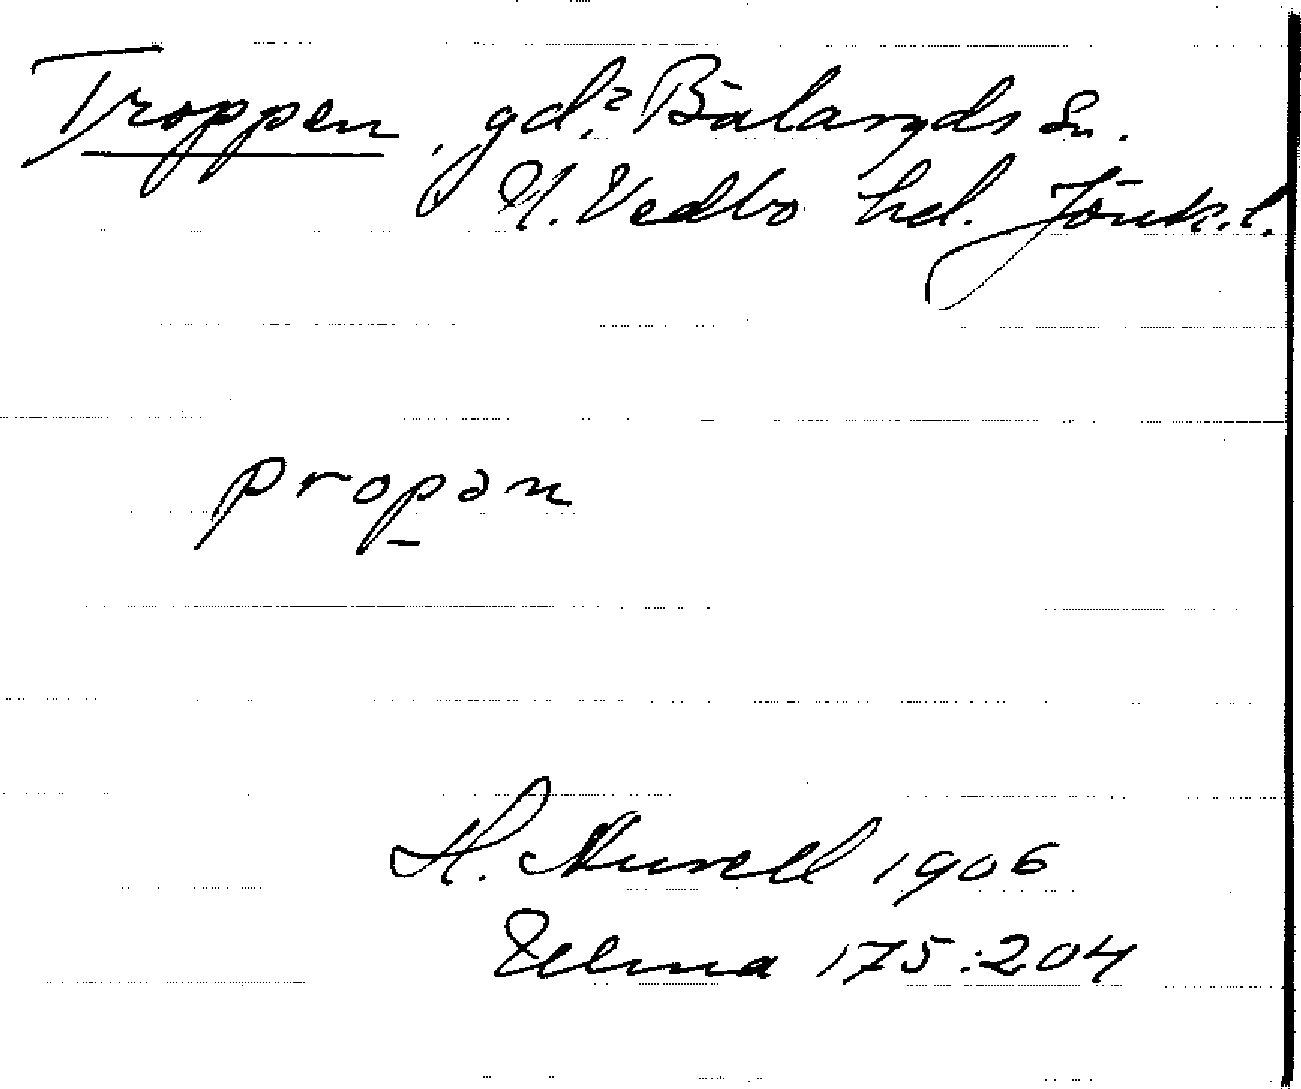 Troppen, gd? Bälaryds sn.
N. Vedbo hd. Jönk. l.
propan
H. Nurell 1906
Ulma 175:204